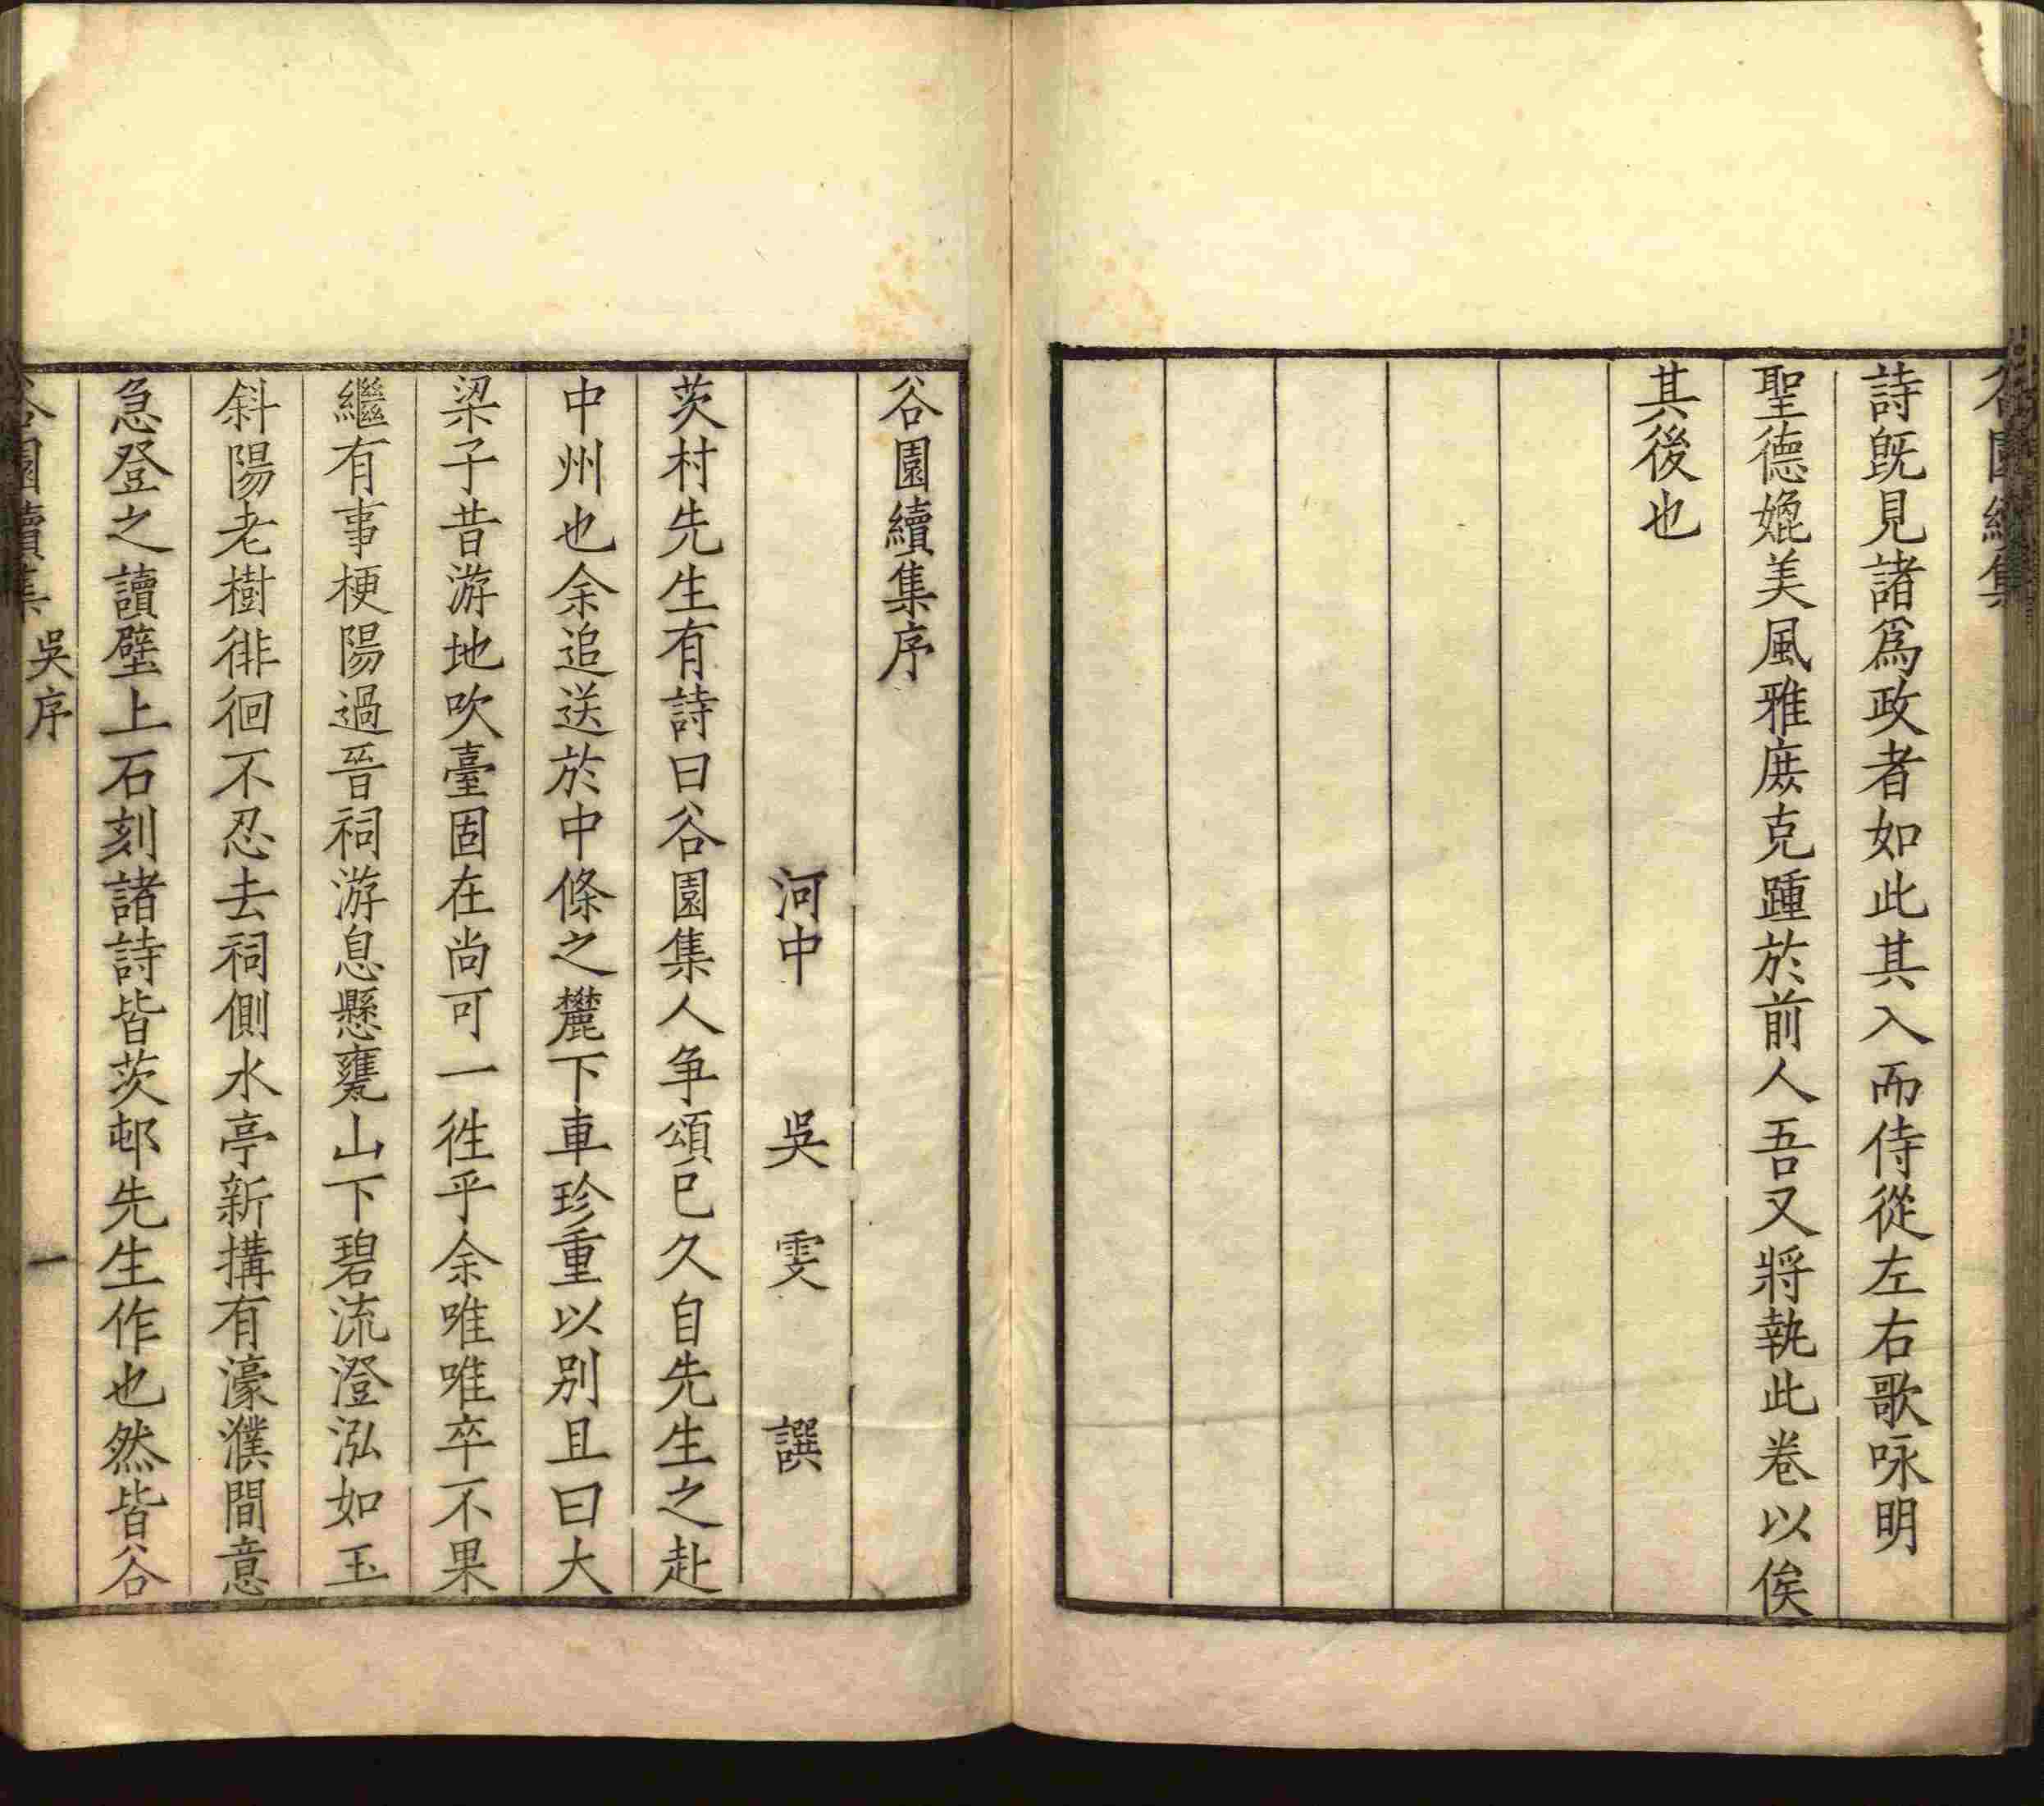 谷園續集
詩既見諸爲政者如此其入而侍從左右歌咏明
聖德媲美風雅庶克踵於前人吾又將執此卷以俟
其後也
谷園續集序
河中 吳雯 譔
茨村先生有詩曰谷園集人争頌已久自先生之赴
中州也余追送於中條之麓下車珍重以别且曰大
梁子昔游地吹臺固在尚可一徃乎余唯唯卒不果
繼有事梗陽過晉祠游息懸甕山下碧流澄泓如玉
斜陽老樹徘徊不忍去祠側水亭新搆有濠濮間意
急登之讀壁上石刻諸詩皆茨邨先生作也然皆谷
谷園續集 吳序 一